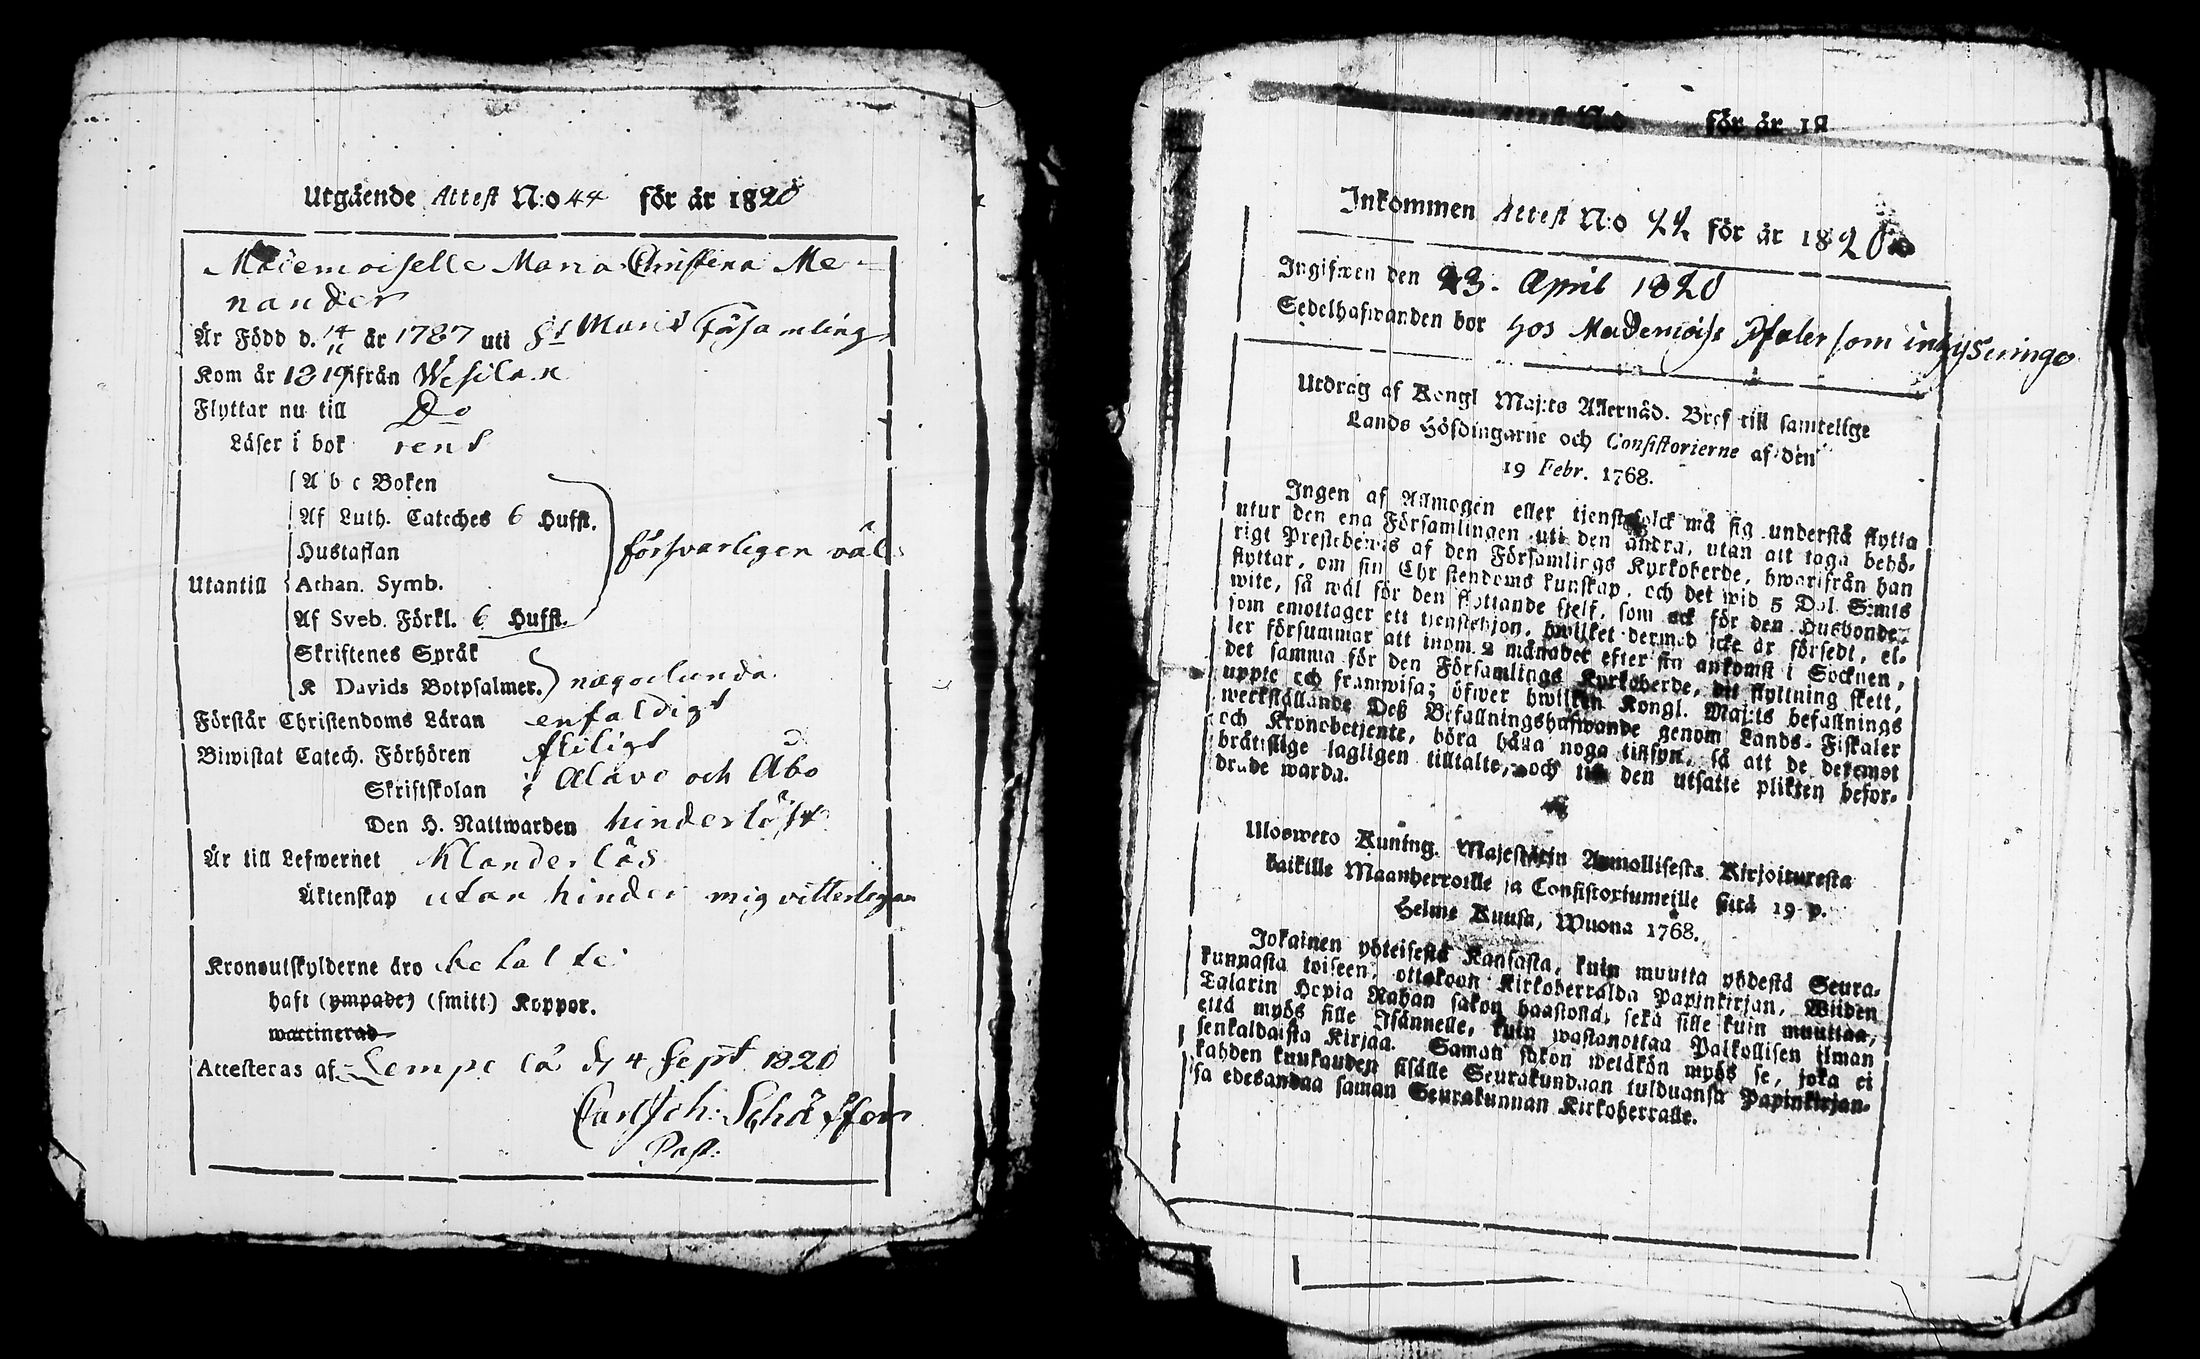 Utgående Attest N:o 44 för år 1820
Mademoiselle Maria Christina Me-
nander
Är Född d. 14/11 år 1787 uti St Mariæ Församling
Kom år 1819 ifrån Wesilax
Flyttar nu till Do
Läser i bok rent
A b c Boken
Af Luth. Cateches 6 Hufst.
Hustaflan
försvarligen väl
Utantill Athan. Symb.
Af Sveb. Förkl. 6 Hufst.
Skriftenes Språk
K Davids Botpsalmer. någorlunda
Förstår Christendoms Läran enfaldigt
Biwistat Catech. Förhören fliligt
Skriftskolan i Alavo och Åbo
Den H. Nattwarden hinderlöst
Är till Lefwernet Klanderlös
Äktenskap utan hinder mig vitterligen
Kronoutskylderne äro betalte
haft (ympade) (smitt) Koppor.
waccinerad
Attesteras af Lempälä d. 4 Sept 1820
Carl Joh: Schäffer
Past:
Attest N:o för år 18
Inkommen Attest N:o 22 för år 1820
Ingifwen den 23. April 1820
Sedelhafwanden bor hos Mademoise Pfaler som inhyseninge
Utdrag af Kongl Maj:ts Allernåd. Bref till samtelige
Lands Höfdingarne och Consistorierne af den
19 Febr. 1768.
Ingen af Allmogen eller tjenstefolck må sig understå flytta
utur den ena Församlingen uti den andra, utan att taga behö-
rigt Prestebewis af den Församlings Kyrkoherde, hwarifrån han
flyttar, om sin Christendoms kunskap, och det wid 5 Dal. S:mts
wite, så wäl för den flyttande sielf, som ock för den Husbonde,
som emottager ett tienstehjon, hwilket dermed icke är försedt, el-
ler försummar att inom 2 månader efter sin ankomst i Socknen,
det samma för den Församlings Kyrkoherde, dit flyttning skett,
uppte och framwisa; öfwer hwilken Kongl. Maj:ts befallnings
werkställande Deß Befallningshafwande genom Lands-Fiskaler
och Kronobetjente, böra hålla noga tillsyn, så att de deremot
bråtislige lagligen tilltalte, och till den utsatte plikten befor-
drade warda.
Uloswero Kuning. Majestätin Armollisesta Kirjoituresta
kaikille Maanherroille ja Consistoriumeille sitä 19 p.
Helme Kuusa, Wuona 1768.
Jokainen yhteisestä Kansasta, kuin muutta yhdestä Seura-
kunnasta toiseen, ottakoon Kirkoherralda Papinkirjan, Wiiden
Talarin Hopia Rahan sakon haastolla, sekä sille kuin muuttaa,
että myös sille Isännelle, kuin wastanottaa Palkollisen ilman
senkaldaista Kirjaa. Saman sakon wetäkön myös se, joka ei
kahden kuukauden sisälle Seurakundaan tulduansa Papinkirjan-
sa edesandaa saman Seurakunnan Kirkoherralle.